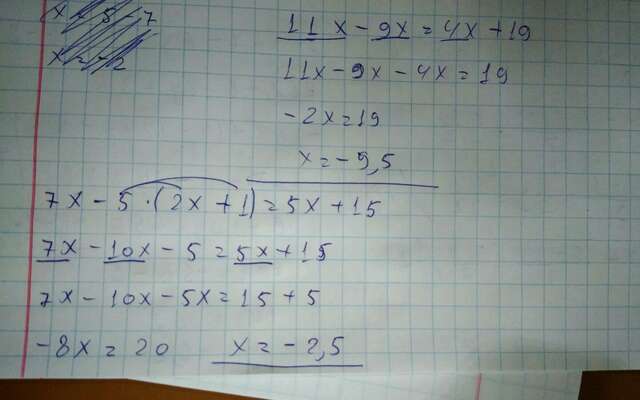 11x - 9x = 4x + 19
11x - 9x - 4x = 19
-2x = 19
x = -9,5
7x - 5 · (2x + 1) = 5x + 15
7x - 10x - 5 = 5x + 15
7x - 10x - 5x = 15 + 5
-8x = 20 x = -2,5